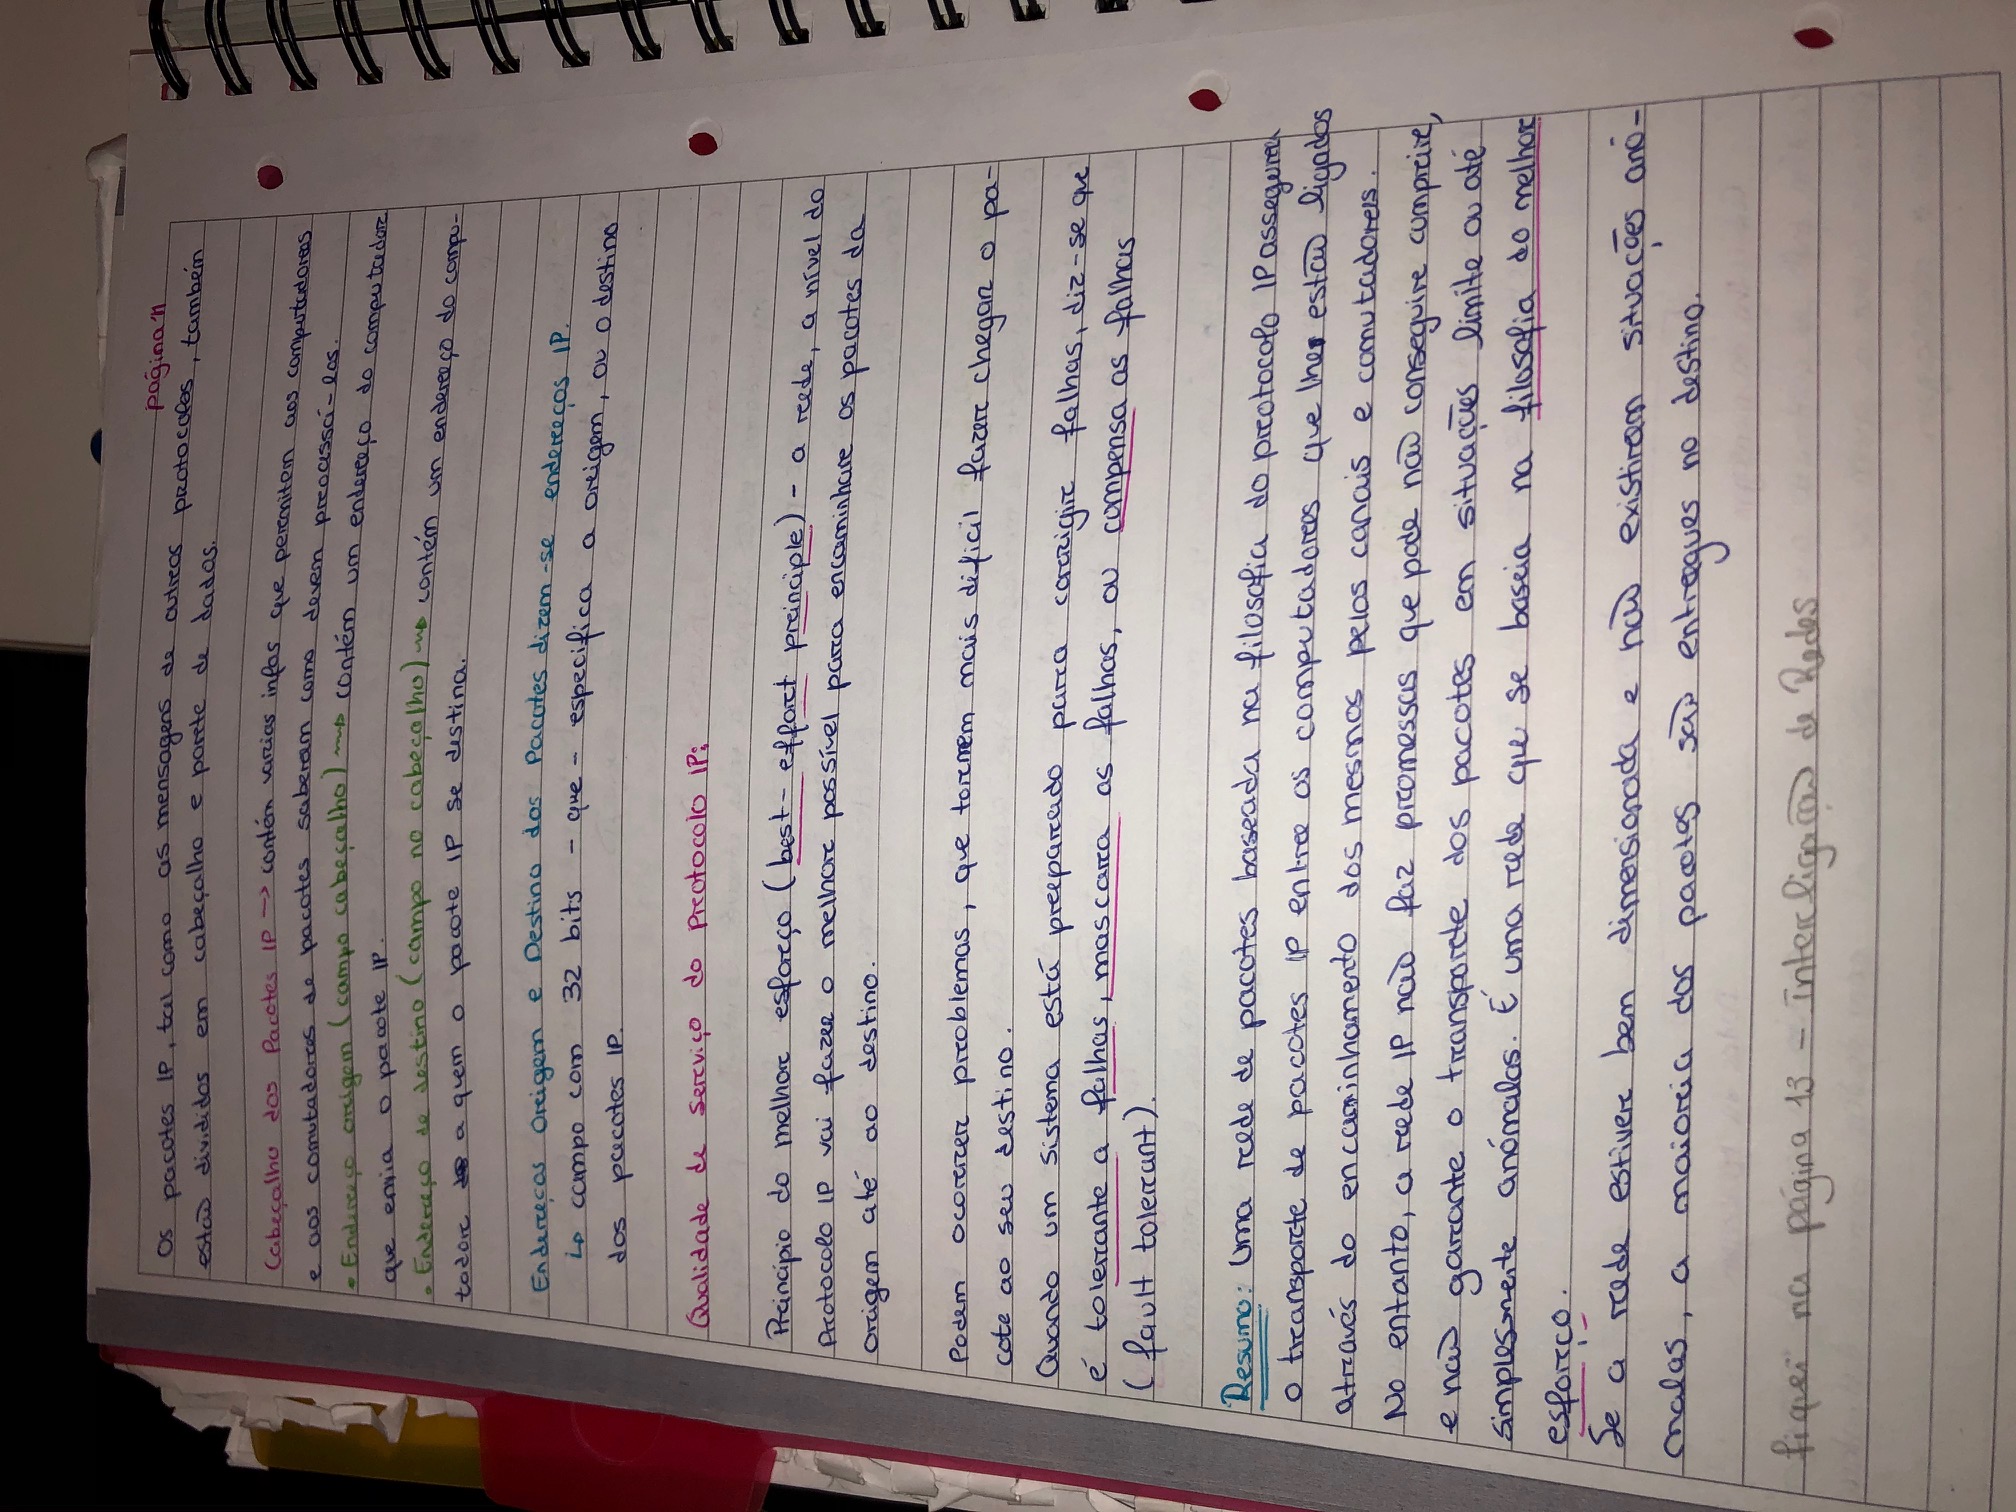 página 11
Os pacotes IP, tal como as mensagens de outros protocolos, também
estão divididos em cabeçalho e parte de dados.
Cabeçalho dos Pacotes IP → contém varias infos que permitem aos computadores
e aos comutadores de pacotes saberem como devem processá-los.
• Endereço origem (campo cabeçalho) → contém um endereço do computador
que envia o pacote IP.
• Endereço de destino (campo no cabeçalho) → contém um endereço do compu-
tador a quem o pacote IP se destina.
Endereços Origem e Destino dos Pacotes dizem-se endereços IP.
↳ campo com 32 bits - que - especifica a origem, ou o destino
dos pacotes IP.
Qualidade de serviço do Protocolo IP:
Princípio do melhor esforço (best-effort principle) - a rede, a nível do
Protocolo IP vai fazer o melhor possível para encaminhar os pacotes da
origem até ao destino.
Podem ocorrer problemas, que tornem mais dificil fazer chegar o pa-
cote ao seu destino.
Quando um sistema está preparado para corrigir falhas, diz-se que
é tolerante a falhas, mascara as falhas, ou compensa as falhas
(fault tolerant).
Resumo: Uma rede de pacotes baseada na filosofia do protocolo IP assegura
o transporte de pacotes IP entre os computadores que lhe estão ligados
através do encaminhamento dos mesmos pelos canais e comutadores.
No entanto, a rede IP não faz promessas que pode não conseguir cumprir,
e não garante o transporte dos pacotes em situações limite ou até
simplesmente anómalas. É uma rede que se baseia na filosofia do melhor
esforço.
Se a rede estiver bem dimensionada e não existirem situações anó-
malas, a maioria dos pacotes são entregues no destino.
fiquei na página 13 - Interligação de Redes